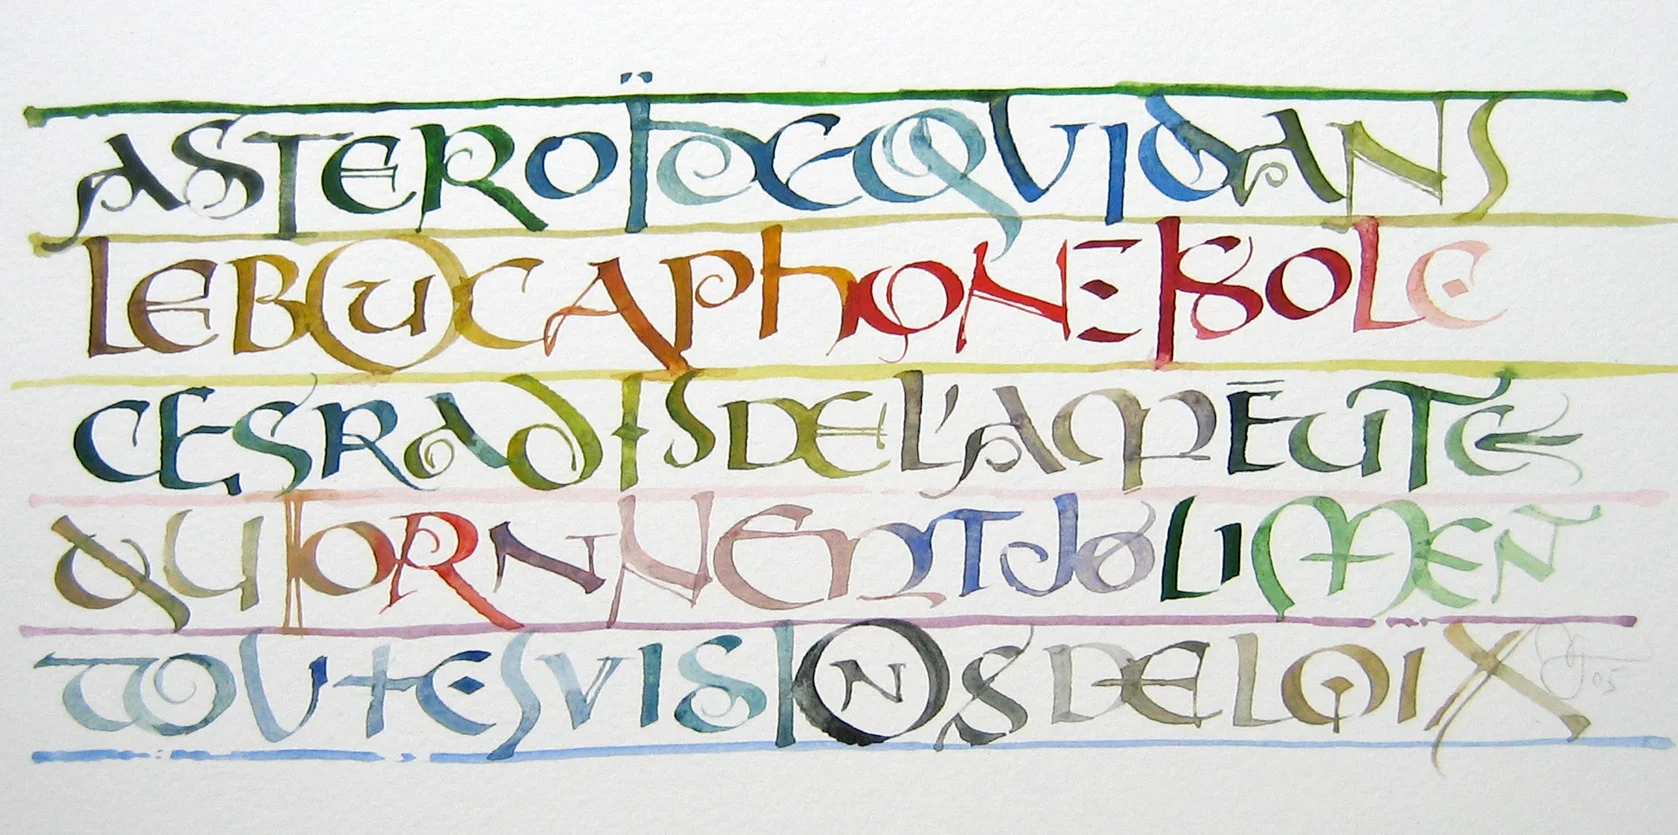 ASTEROÏDE QUI DANS
LE BOUCAPHONE ISOLE
CES RADIS DE L'AMĒUTE
QUI ORNNENT JOLIMENT
TOUTES VISIONS DE LOIX
05